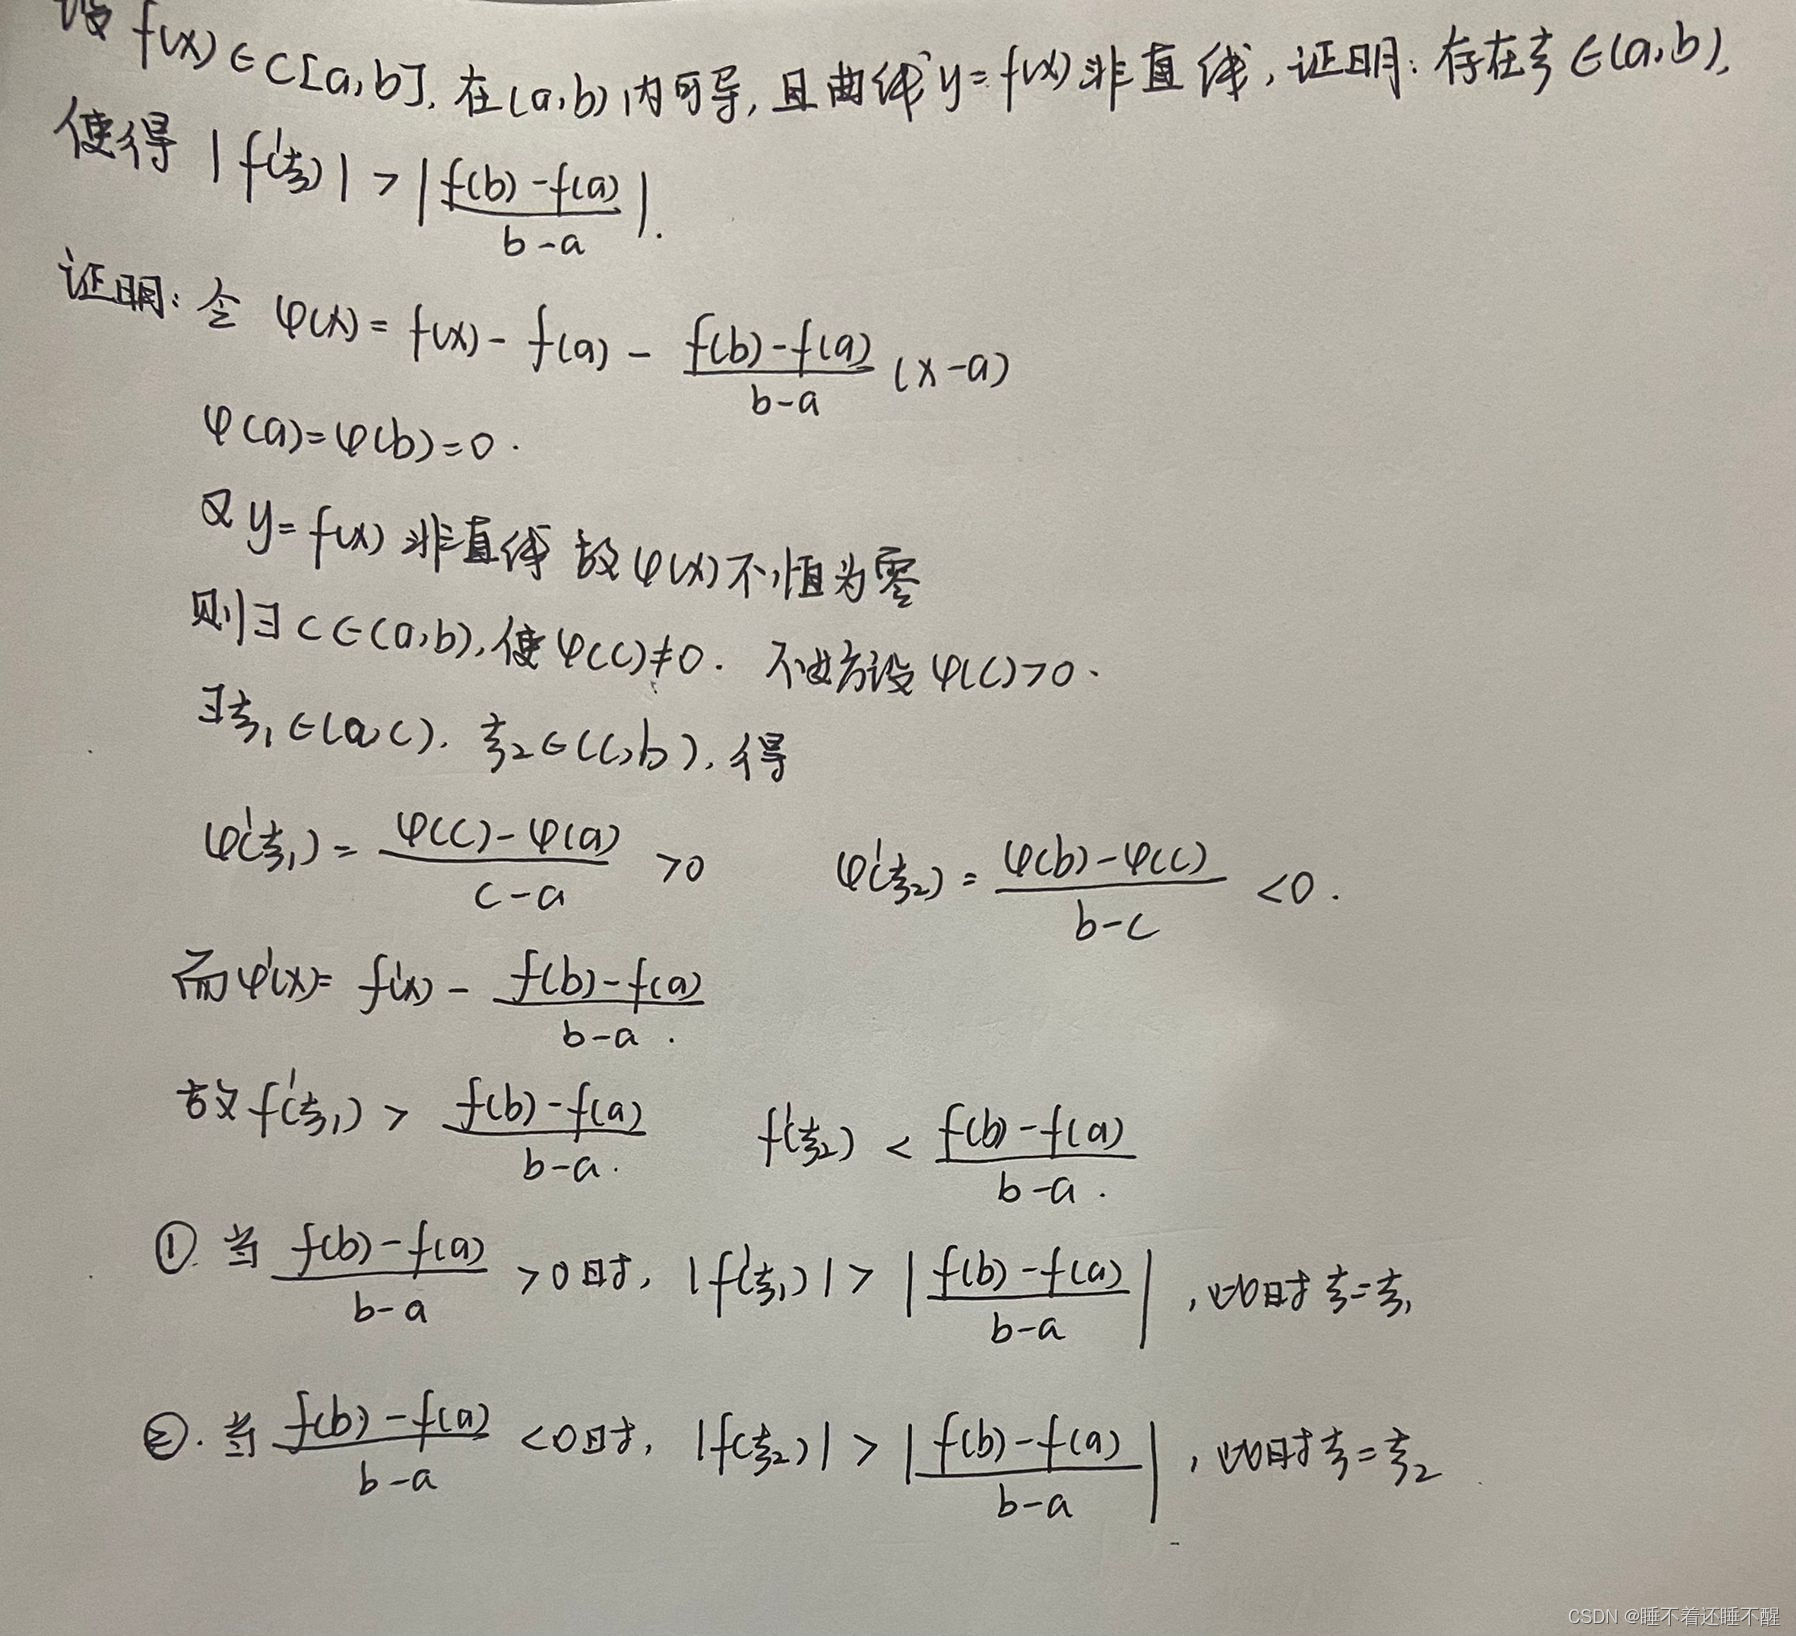 设 f(x)∈C[a,b], 在(a,b)内可导, 且曲线y=f(x)非直线, 证明: 存在ξ∈(a,b),
使得 |f'(ξ)| > |\frac{f(b)-f(a)}{b-a}|.
证明: 令 φ(x) = f(x) - f(a) - \frac{f(b)-f(a)}{b-a}(x-a)
φ(a)=φ(b)=0.
又y=f(x)非直线 故φ(x)不恒为零
则∃c∈(a,b),使φ(c)≠0. 不妨设φ(c)>0.
∃ξ₁∈(a,c). ξ₂∈(c,b),得
φ'(ξ₁) = \frac{φ(c)-φ(a)}{c-a} >0 φ'(ξ₂) = \frac{φ(b)-φ(c)}{b-c} <0.
而φ'(x)= f'(x) - \frac{f(b)-f(a)}{b-a}.
故f'(ξ₁) > \frac{f(b)-f(a)}{b-a}. f'(ξ₂) < \frac{f(b)-f(a)}{b-a}.
①. 当\frac{f(b)-f(a)}{b-a} >0时, |f'(ξ₁)| > |\frac{f(b)-f(a)}{b-a}|, 此时ξ=ξ₁
②. 当\frac{f(b)-f(a)}{b-a} <0时, |f(ξ₂)| > |\frac{f(b)-f(a)}{b-a}|, 此时ξ=ξ₂
CSDN @睡不着还睡不醒